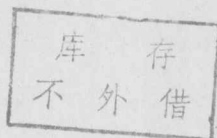 库存
不外借